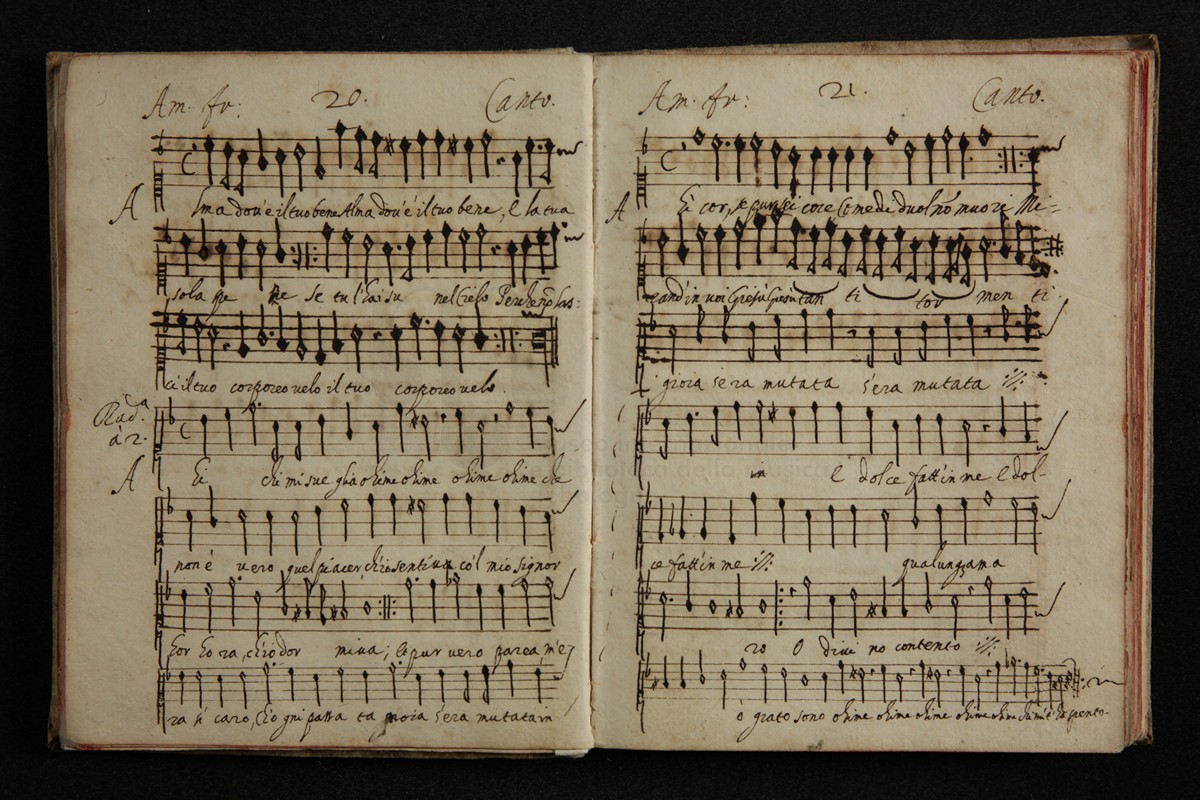 Am. fr: 20. Canto.
A lma dov'è il tuo bene Alma dov'è il tuo bene, E la tua
sola spe ne Se tu l'hai su nel Cielo Perche nõ las:
ci il tuo corporeo velo il tuo corporeo velo.
à 2.
A hi chi mi sueglia ohime ohime ohime ohime che
non è vero quel piacer, ch'io sentiva co'l mio signor
hor hora, ch'io dor miva; E pur vero parea, m'e
ra sì caro, ch'ogni passata gioia s'era mutata in
Am. fr: 21. Canto.
A hi cor, se pur sei core Come di duol nõ muori Mi-
rand' in voi Giesù Giesù tan ti tor men ti
gioia s'era mutata s'era mutata ://:
in E dolce fatt'in me E dol-
ce fatt'in me ://: qualunq; ama
ro O divi no contento ://:
ò grato sono ohime ohime ohime ohime ohime